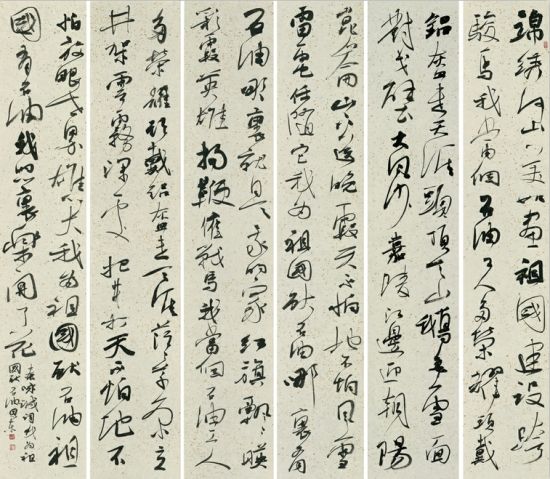 錦绣河山美如画祖國建设跨
骏馬我當個石油工人多荣耀頭戴
鋁盔走天涯頭頂天山鵝毛雪面
對戈壁大風沙嘉陵江邊迎朝陽
崑崙山下送晚霞天不怕地不怕風雪
雷電任随它我为祖國献石油哪裏有
石油哪裏就是我的家红旗飄飄映
彩霞英雄揚鞭催战馬我當個石油工人
多榮耀頭戴鋁盔走天涯茫茫草原立
井架雲霧深處把井打天不怕地不
怕放眼世界雄心大我为祖國献石油祖
國有石油我的心裏樂開了花
詞我为祖
國献石油